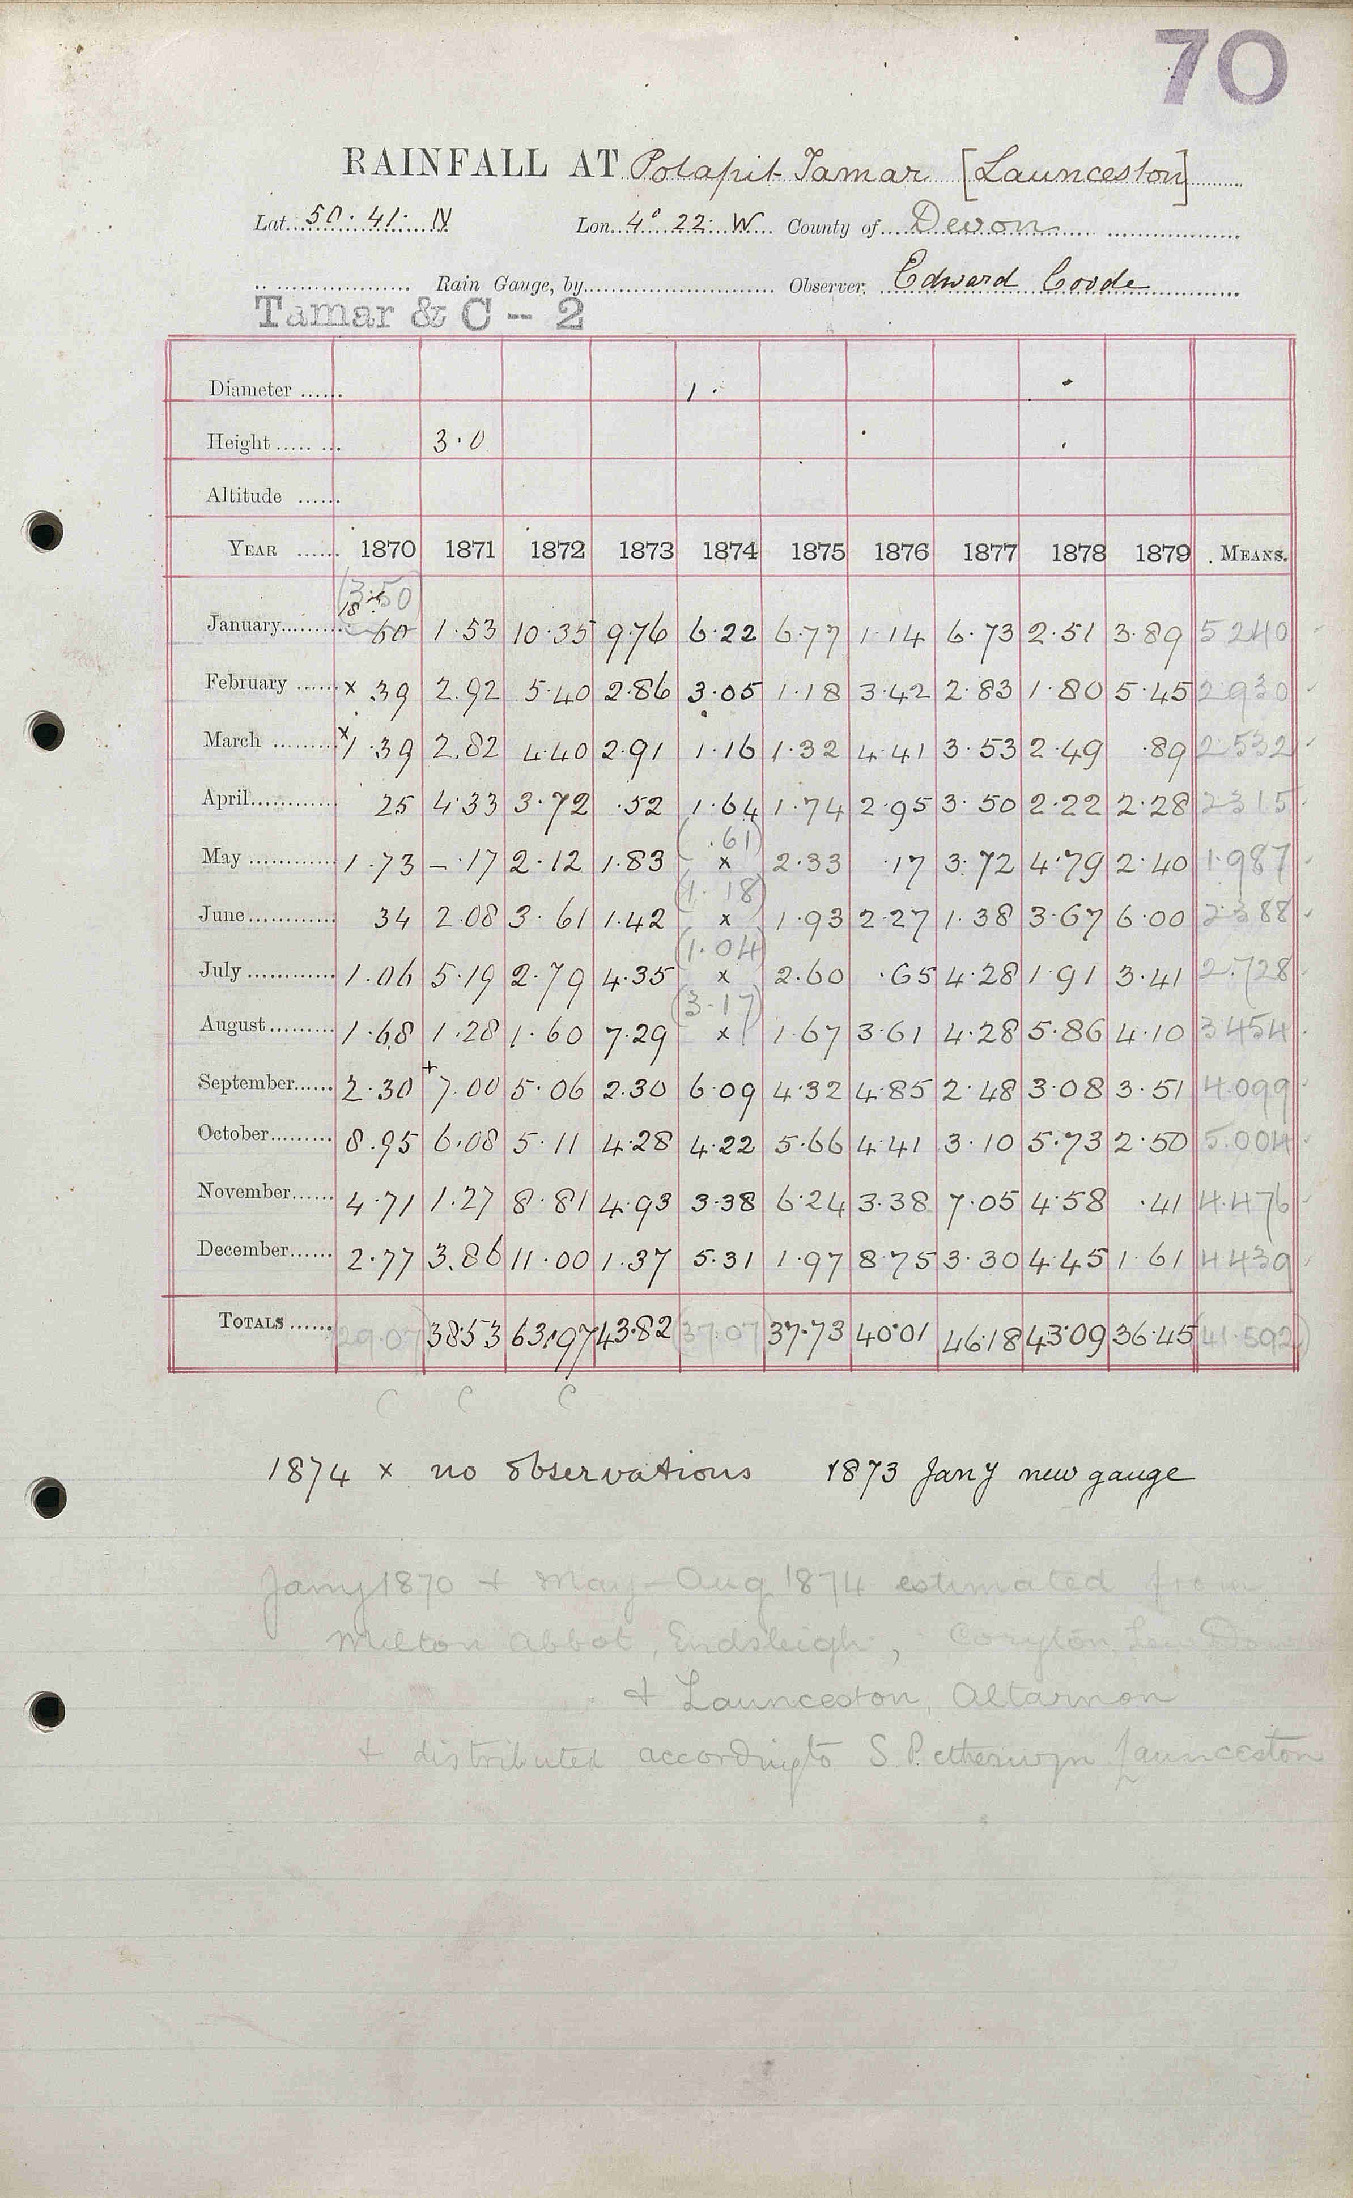 70
RAINFALL AT Polapit Tamar [Launceston]
Lat. 50. 41. N Lon. 4° 22. W County of Devon
Rain Gauge, by Observer, Edward Coode
Tamar & C -- 2
Diameter 1.
Height 3.0
Altitude
YEAR 1870 1871 1872 1873 1874 1875 1876 1877 1878 1879 MEANS.
(3.50
January 60 1.53 10.35 9.76 6.22 6.77 1.14 6.73 2.51 3.89 5.240
February x 39 2.92 5.40 2.86 3.05 1.18 3.42 2.83 1.80 5.45 2.930
March x 1.39 2.82 4.40 2.91 1.16 1.32 4.41 3.53 2.49 .89 2.532
April 25 4.33 3.72 .52 1.64 1.74 2.95 3.50 2.22 2.28 2.315
(.61)
May 1.73 – .17 2.12 1.83 x 2.33 .17 3.72 4.79 2.40 1.987
(1.18)
June 34 2.08 3.61 1.42 x 1.93 2.27 1.38 3.67 6.00 2.388
(1.04)
July 1.06 5.19 2.79 4.35 x 2.60 .65 4.28 1.91 3.41 2.728
(3.17)
August 1.68 1.28 1.60 7.29 x 1.67 3.61 4.28 5.86 4.10 3.454
September 2.30 + 7.00 5.06 2.30 6.09 4.32 4.85 2.48 3.08 3.51 4.099
October 8.95 6.08 5.11 4.28 4.22 5.66 4.41 3.10 5.73 2.50 5.004
November 4.71 1.27 8.81 4.93 3.38 6.24 3.38 7.05 4.58 .41 4.476
December 2.77 3.86 11.00 1.37 5.31 1.97 8.75 3.30 4.45 1.61 4.439
TOTALS (29.07) 38.53 63.97 43.82 (37.07) 37.73 40.01 46.18 43.09 36.45 (41.592)
C C C
1874 x no observations 1873 Jany new gauge
Jany 1870 + May – Aug 1874 estimated from
Milton Abbot, Endsleigh, Coryton, Lew Down
+ Launceston, Altarnon
+ distributed according to S. Petherwyn Launceston